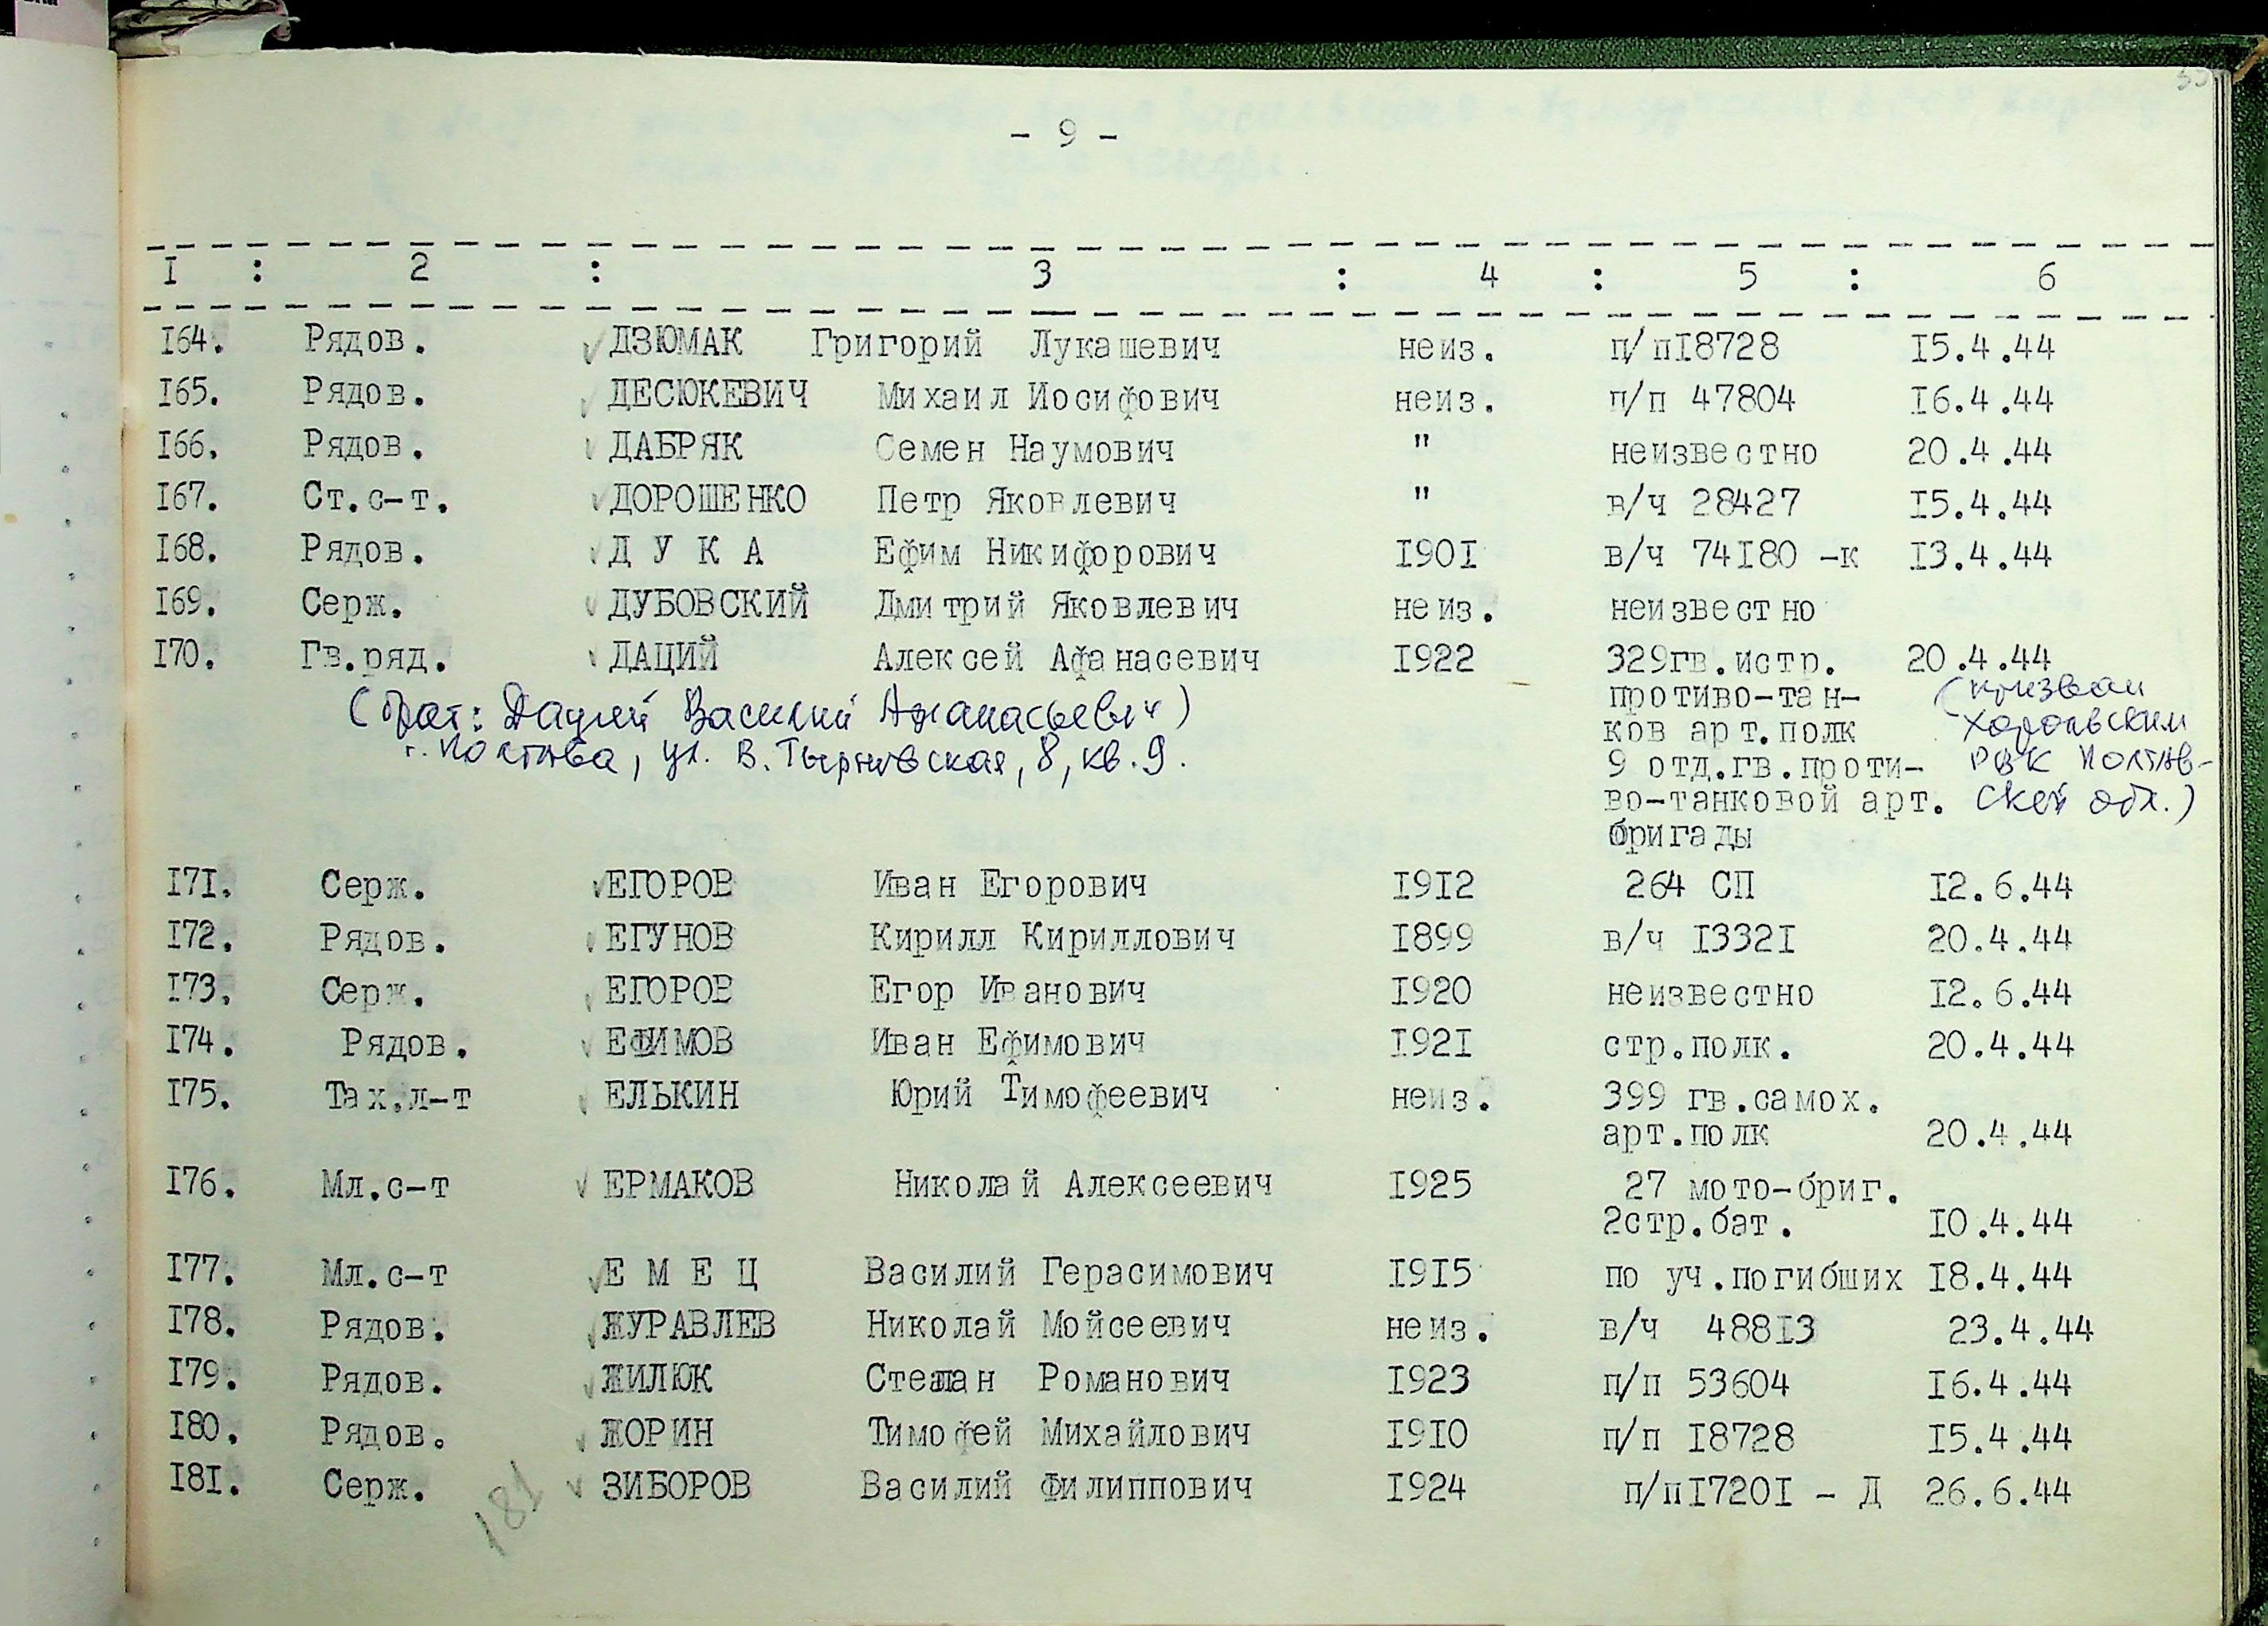 - 9 -
I : 2 : 3 : 4 : 5 : 6
I64. Рядов. ДЗЮМАК Григорий Лукашевич неиз. п/пI8728 I5.4.44
I65. Рядов. ДЕСЮКЕВИЧ Михаил Иосифович неиз. п/п 47804 I6.4.44
I66. Рядов. ДАБРЯК Семен Наумович " неизвестно 20.4.44
I67. Ст.с-т. ДОРОШЕНКО Петр Яковлевич " в/ч 28427 I5.4.44
I68. Рядов. Д У К А Ефим Никифорович I90I в/ч 74I80 -к I3.4.44
I69. Серж. ДУБОВСКИЙ Дмитрий Яковлевич неиз. неизвестно
I70. Гв.ряд. ДАЦИЙ Алексей Афанасевич I922 329гв.истр. 20.4.44
(брат: Даций Василий Афанасьевич) противо-тан- (призван
г. Полтава, ул. В. Тырновская, 8, кв. 9. ков арт.полк Хорольским
9 отд.гв.проти- РВК Полтав-
во-танковой арт. ской обл.)
бригады
I7I. Серж. ЕГОРОВ Иван Егорович I9I2 264 СП I2.6.44
I72. Рядов. ЕГУНОВ Кирилл Кириллович I899 в/ч I332I 20.4.44
I73. Серж. ЕГОРОВ Егор Иванович I920 неизвестно I2.6.44
I74. Рядов. ЕФИМОВ Иван Ефимович I92I стр.полк. 20.4.44
I75. Тах.л-т ЕЛЬКИН Юрий Тимофеевич неиз. 399 гв.самох.
арт.полк 20.4.44
I76. Мл.с-т ЕРМАКОВ Николай Алексеевич I925 27 мото-бриг.
2стр.бат. I0.4.44
I77. Мл.с-т Е М Е Ц Василий Герасимович I9I5 по уч.погибших I8.4.44
I78. Рядов. ЖУРАВЛЕВ Николай Мойсеевич неиз. в/ч 488I3 23.4.44
I79. Рядов. ЖИЛЮК Степан Романович I923 п/п 53604 I6.4.44
I80. Рядов. ЖОРИН Тимофей Михайлович I9I0 п/п I8728 I5.4.44
I8I. Серж. ЗИБОРОВ Василий Филиппович I924 п/пI720I - Д 26.6.44
181